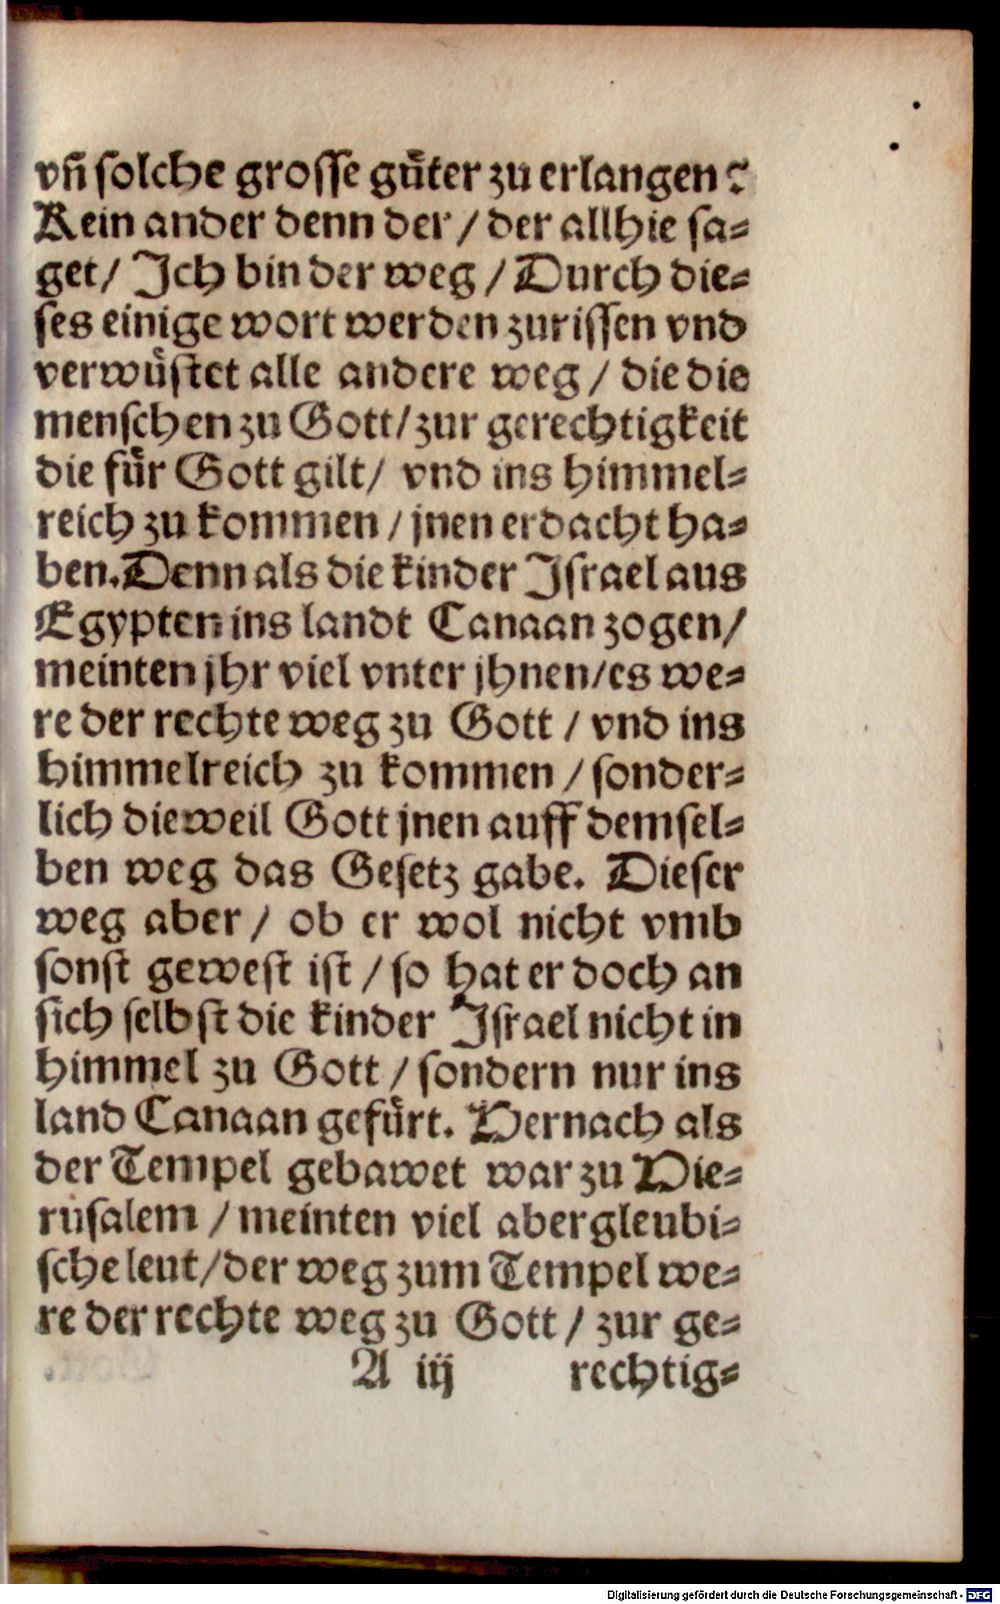 vñ solche grosse guͤter zu erlangen?
Kein ander denn der / der allhie sa⸗
get / Ich bin der weg / Durch die⸗
ses einige wort werden zurissen vnd
verwuͤstet alle andere weg / die die
menschen zu Gott / zur gerechtigkeit
die fuͤr Gott gilt / vnd ins himmel⸗
reich zu kommen / jnen erdacht ha⸗
ben. Denn als die kinder Israel aus
Egypten ins landt Canaan zogen /
meinten jhr viel vnter jhnen / es we⸗
re der rechte weg zu Gott / vnd ins
himmelreich zu kommen / sonder⸗
lich dieweil Gott jnen auff demsel⸗
ben weg das Gesetz gabe. Dieser
weg aber / ob er wol nicht vmb
sonst gewest ist / so hat er doch an
sich selbst die kinder Israel nicht in
himmel zu Gott / sondern nur ins
land Canaan gefuͤrt. Hernach als
der Tempel gebawet war zu Hie⸗
rusalem / meinten viel abergleubi⸗
sche leut / der weg zum Tempel we⸗
re der rechte weg zu Gott / zur ge⸗
A iij rechtig⸗
Digitalisierung gefördert durch die Deutsche Forschungsgemeinschaft - DFG